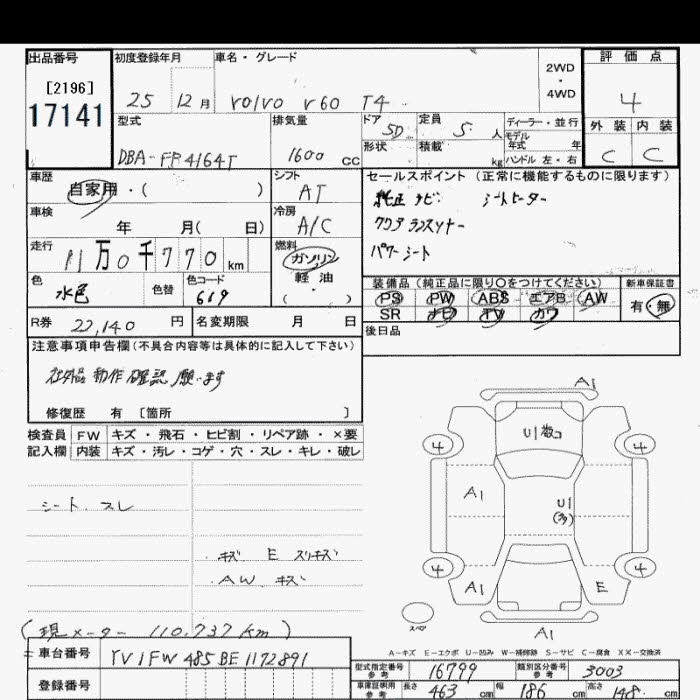 出品番号 初度登録年月 車名・グレード 評価点
[2196] 2WD・4WD
17141 25 12月 volvo V60 T4 4
型式 排気量 ドア 5D 定員 5人 ディーラー・並行 外装 内装
モデル年式 年
DBA-FB4164T 1600cc 形状 積載 kg ハンドル 左・右 C C
車歴 シフト セールスポイント (正常に機能するものに限ります)
自家用・( ) AT 純正ナビ シートヒーター
車検 冷房 クリアランスソナー
年 月( 日) A/C パワーシート
走行 燃料
11万0千770km ガソリン
軽・油
・( )
色 水色 色替 色コード 619
装備品 (純正品に限り○をつけてください) 新車保証書
PS PW ABS エアB AW 有・無
SR ナビ TV カワ
R券 22,140円 名変期限 月 日 後日品
注意事項申告欄(不具合内容等は具体的に記入して下さい)
社外品動作確認願います
修復歴 有 [箇所 ]
検査員記入欄 FW キズ・飛石・ヒビ割・リペア跡・×要
内装 キズ・汚レ・コゲ・穴・スレ・キレ・破レ
A1
U1数コ
4 4
A1 U1(多)
シート.スレ
キズ E スリキズ
AW キズ
4 4
A1 E
スペア A1
(現メーター 110,737km)
A-キズ E-エクボ U-凹み W-補修跡 S-サビ C-腐食 XX-交換済
車台番号 YV1FW485BE1172891
型式指定番号 参考 16799 類別区分番号 参考 3003
登録番号
車庫証明用 参考 長さ 463cm 幅 186cm 高さ 148cm